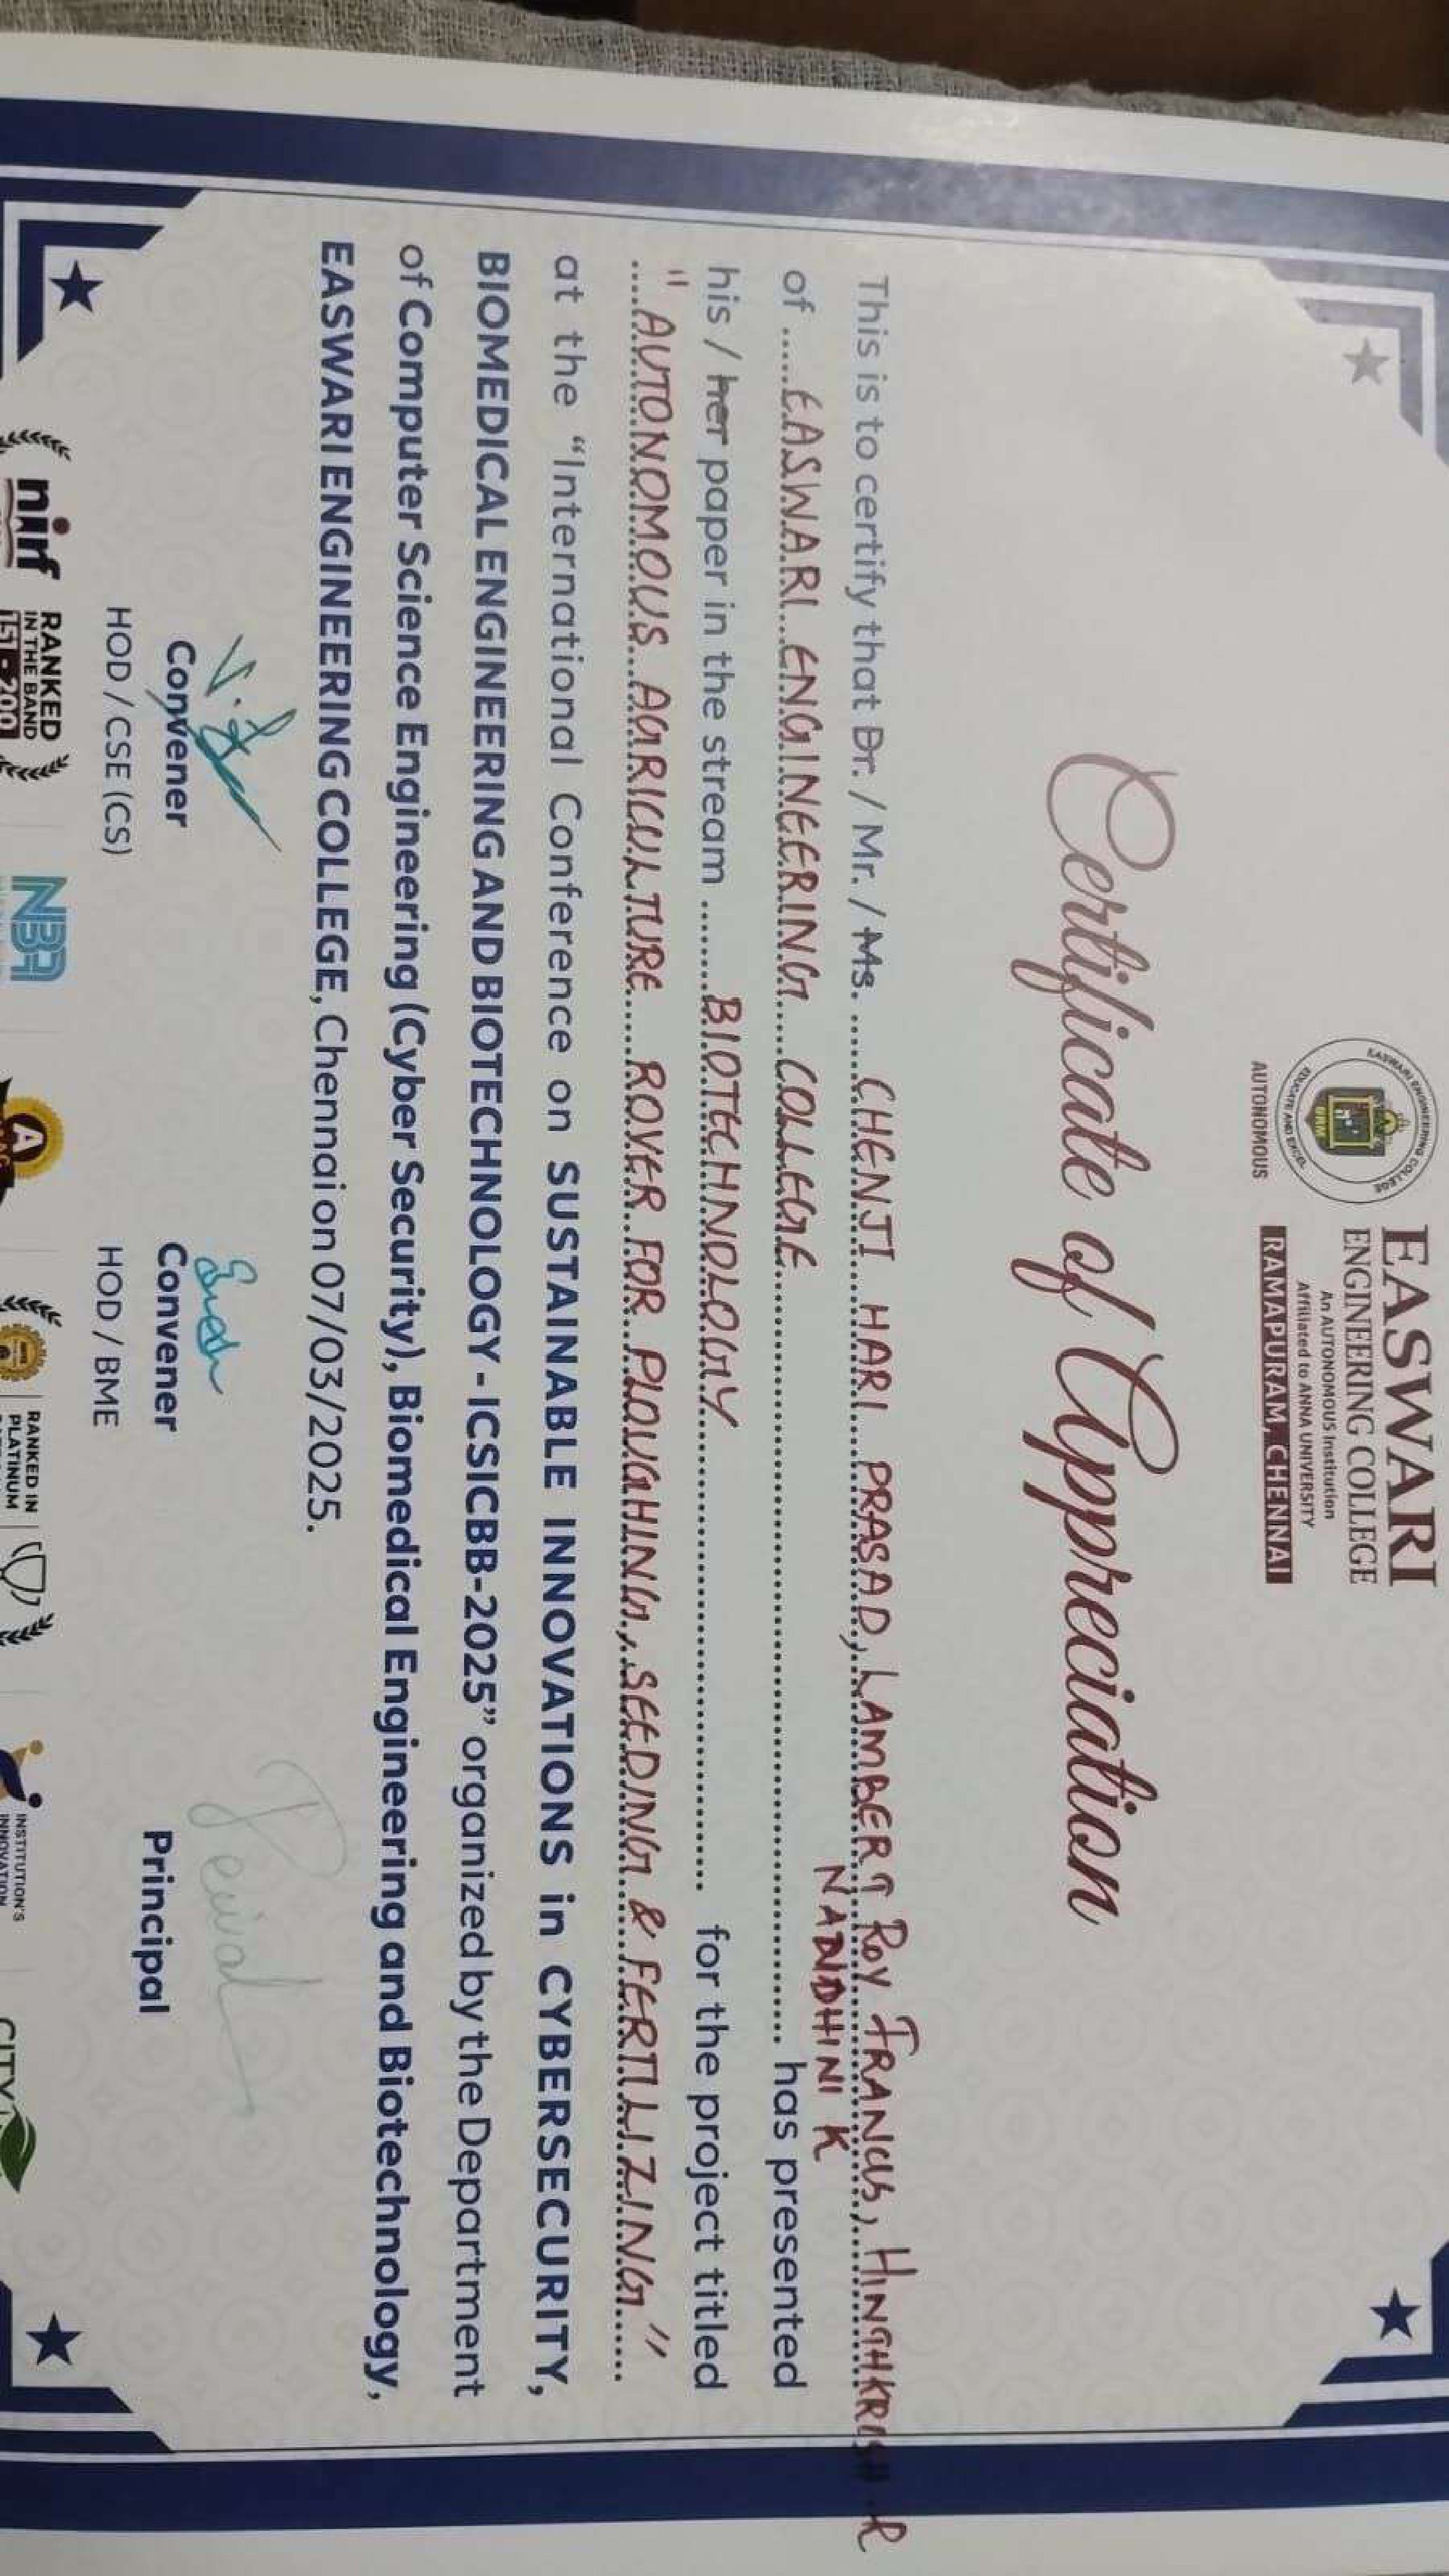 EASWARI ENGINEERING COLLEGE
EDUCATE AND EXCEL
SRM
AUTONOMOUS
EASWARI
ENGINEERING COLLEGE
An AUTONOMOUS Institution
Affiliated to ANNA UNIVERSITY
RAMAPURAM, CHENNAI
Certificate of Appreciation
This is to certify that Dr. / Mr. / Ms. CHENJI HARI PRASAD, LAMBERT ROY FRANCIS, HINGHKRISH R
NANDHINI K
of EASWARI ENGINEERING COLLEGE has presented
his / her paper in the stream BIOTECHNOLOGY for the project titled
"AUTONOMOUS AGRICULTURE ROVER FOR PLOUGHING, SEEDING & FERTILIZING"
at the “International Conference on SUSTAINABLE INNOVATIONS in CYBERSECURITY,
BIOMEDICAL ENGINEERING AND BIOTECHNOLOGY - ICSICBB-2025” organized by the Department
of Computer Science Engineering (Cyber Security), Biomedical Engineering and Biotechnology,
EASWARI ENGINEERING COLLEGE, Chennai on 07/03/2025.
Convener
HOD / CSE (CS)
Convener
HOD / BME
Principal
nirf
RANKED
IN THE BAND
151 - 200
NBA
A
RANKED IN
PLATINUM
INSTITUTION'S
INNOVATION
CITY